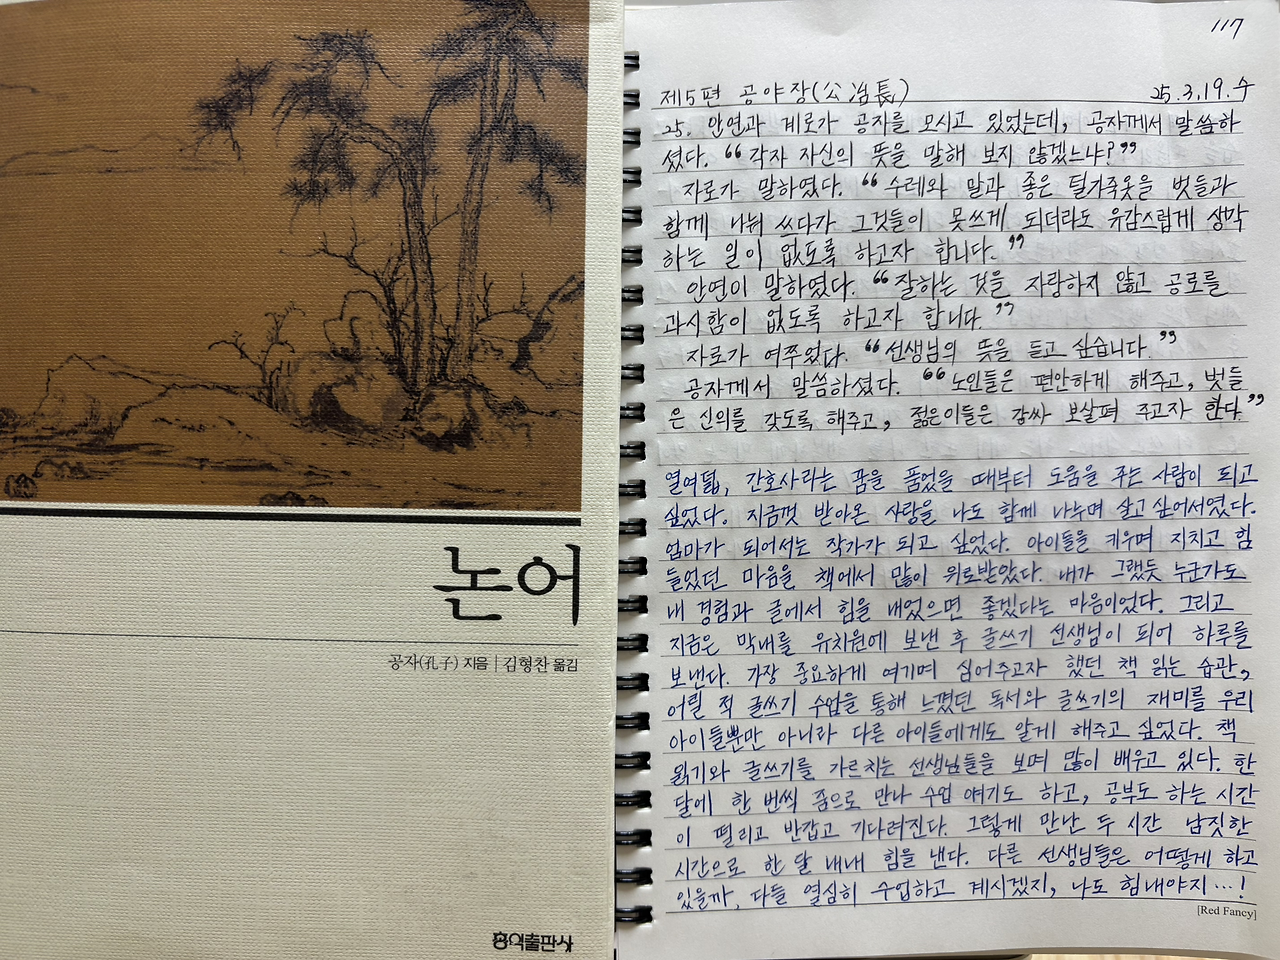 논어
공자(孔子) 지음 | 김형찬 옮김
홍익출판사
117
제5편 공야장(公冶長) 25.3.19.수
25. 안연과 계로가 공자를 모시고 있었는데, 공자께서 말씀하
셨다. “각자 자신의 뜻을 말해 보지 않겠느냐?”
자로가 말하였다. “수레와 말과 좋은 털가죽옷을 벗들과
함께 나눠 쓰다가 그것들이 못쓰게 되더라도 유감스럽게 생각
하는 일이 없도록 하고자 합니다.”
안연이 말하였다. “잘하는 것을 자랑하지 않고 공로를
과시함이 없도록 하고자 합니다.”
자로가 여쭈었다. “선생님의 뜻을 듣고 싶습니다.”
공자께서 말씀하셨다. “노인들은 편안하게 해주고, 벗들
은 신의를 갖도록 해주고, 젊은이들은 감싸 보살펴 주고자 한다.”
열여덟, 간호사라는 꿈을 품었을 때부터 도움을 주는 사람이 되고
싶었다. 지금껏 받아온 사랑을 나도 함께 나누며 살고 싶어서였다.
엄마가 되어서는 작가가 되고 싶었다. 아이들을 키우며 지치고 힘
들었던 마음을 책에서 많이 위로받았다. 내가 그랬듯 누군가도
내 경험과 글에서 힘을 내었으면 좋겠다는 마음이었다. 그리고
지금은 막내를 유치원에 보낸 후 글쓰기 선생님이 되어 하루를
보낸다. 가장 중요하게 여기며 심어주고자 했던 책 읽는 습관,
어릴 적 글쓰기 수업을 통해 느꼈던 독서와 글쓰기의 재미를 우리
아이들뿐만 아니라 다른 아이들에게도 알게 해주고 싶었다. 책
읽기와 글쓰기를 가르치는 선생님들을 보며 많이 배우고 있다. 한
달에 한 번씩 줌으로 만나 수업 얘기도 하고, 공부도 하는 시간
이 떨리고 반갑고 기다려진다. 그렇게 만난 두 시간 남짓한
시간으로 한 달 내내 힘을 낸다. 다른 선생님들은 어떻게 하고
있을까, 다들 열심히 수업하고 계시겠지, 나도 힘내야지…!
[Red Fancy]